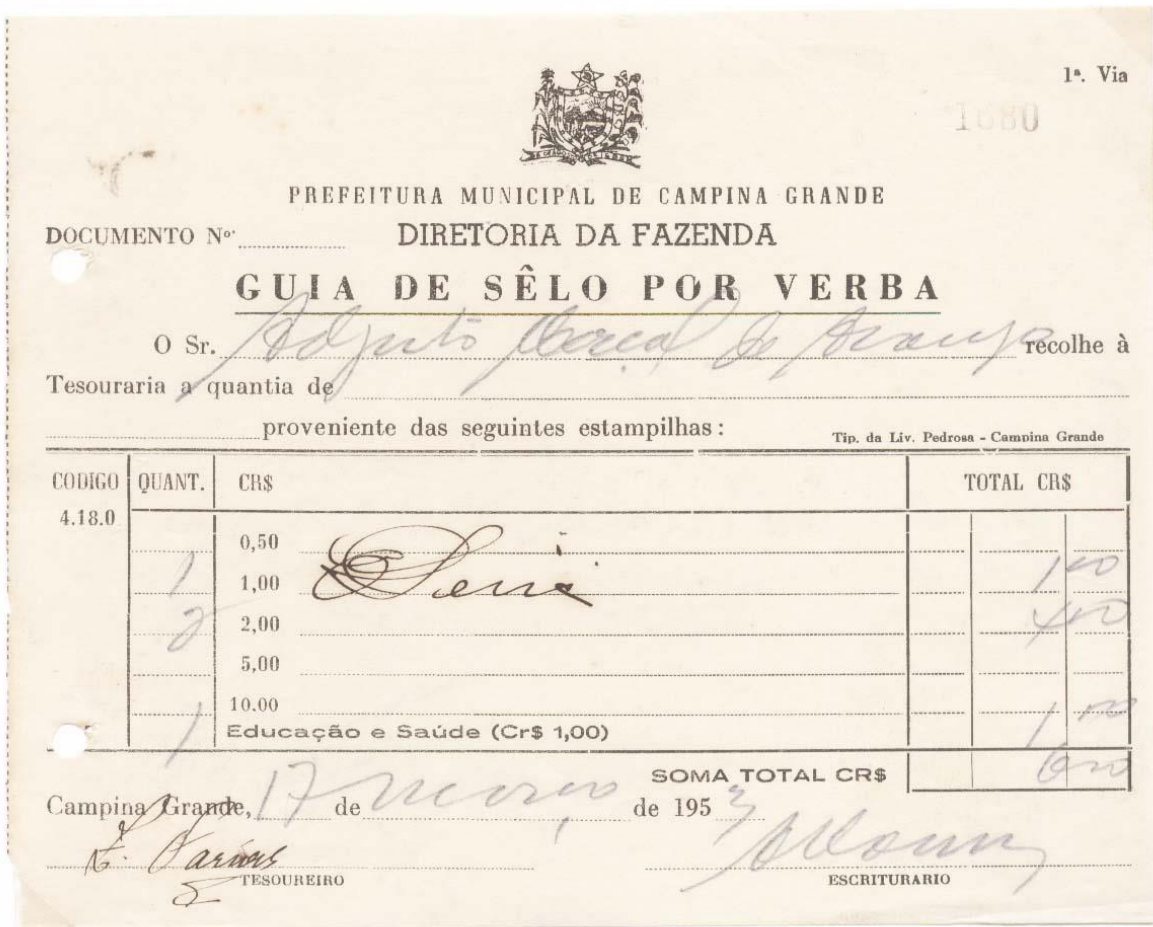 1ª. Via
1680
PREFEITURA MUNICIPAL DE CAMPINA GRANDE
DOCUMENTO Nº. DIRETORIA DA FAZENDA
GUIA DE SÊLO POR VERBA
O Sr. de Araujo recolhe à
Tesouraria a quantia de
proveniente das seguintes estampilhas:
Tip. da Liv. Pedrosa - Campina Grande
CODIGO QUANT. CR$ TOTAL CR$
4.18.0
0,50
1 1,00 1 00
2 2,00 4 00
5,00
10,00
1 Educação e Saúde (Cr$ 1,00) 1 00
SOMA TOTAL CR$ 6 00
Campina Grande, 17 de março de 1953
TESOUREIRO ESCRITURARIO